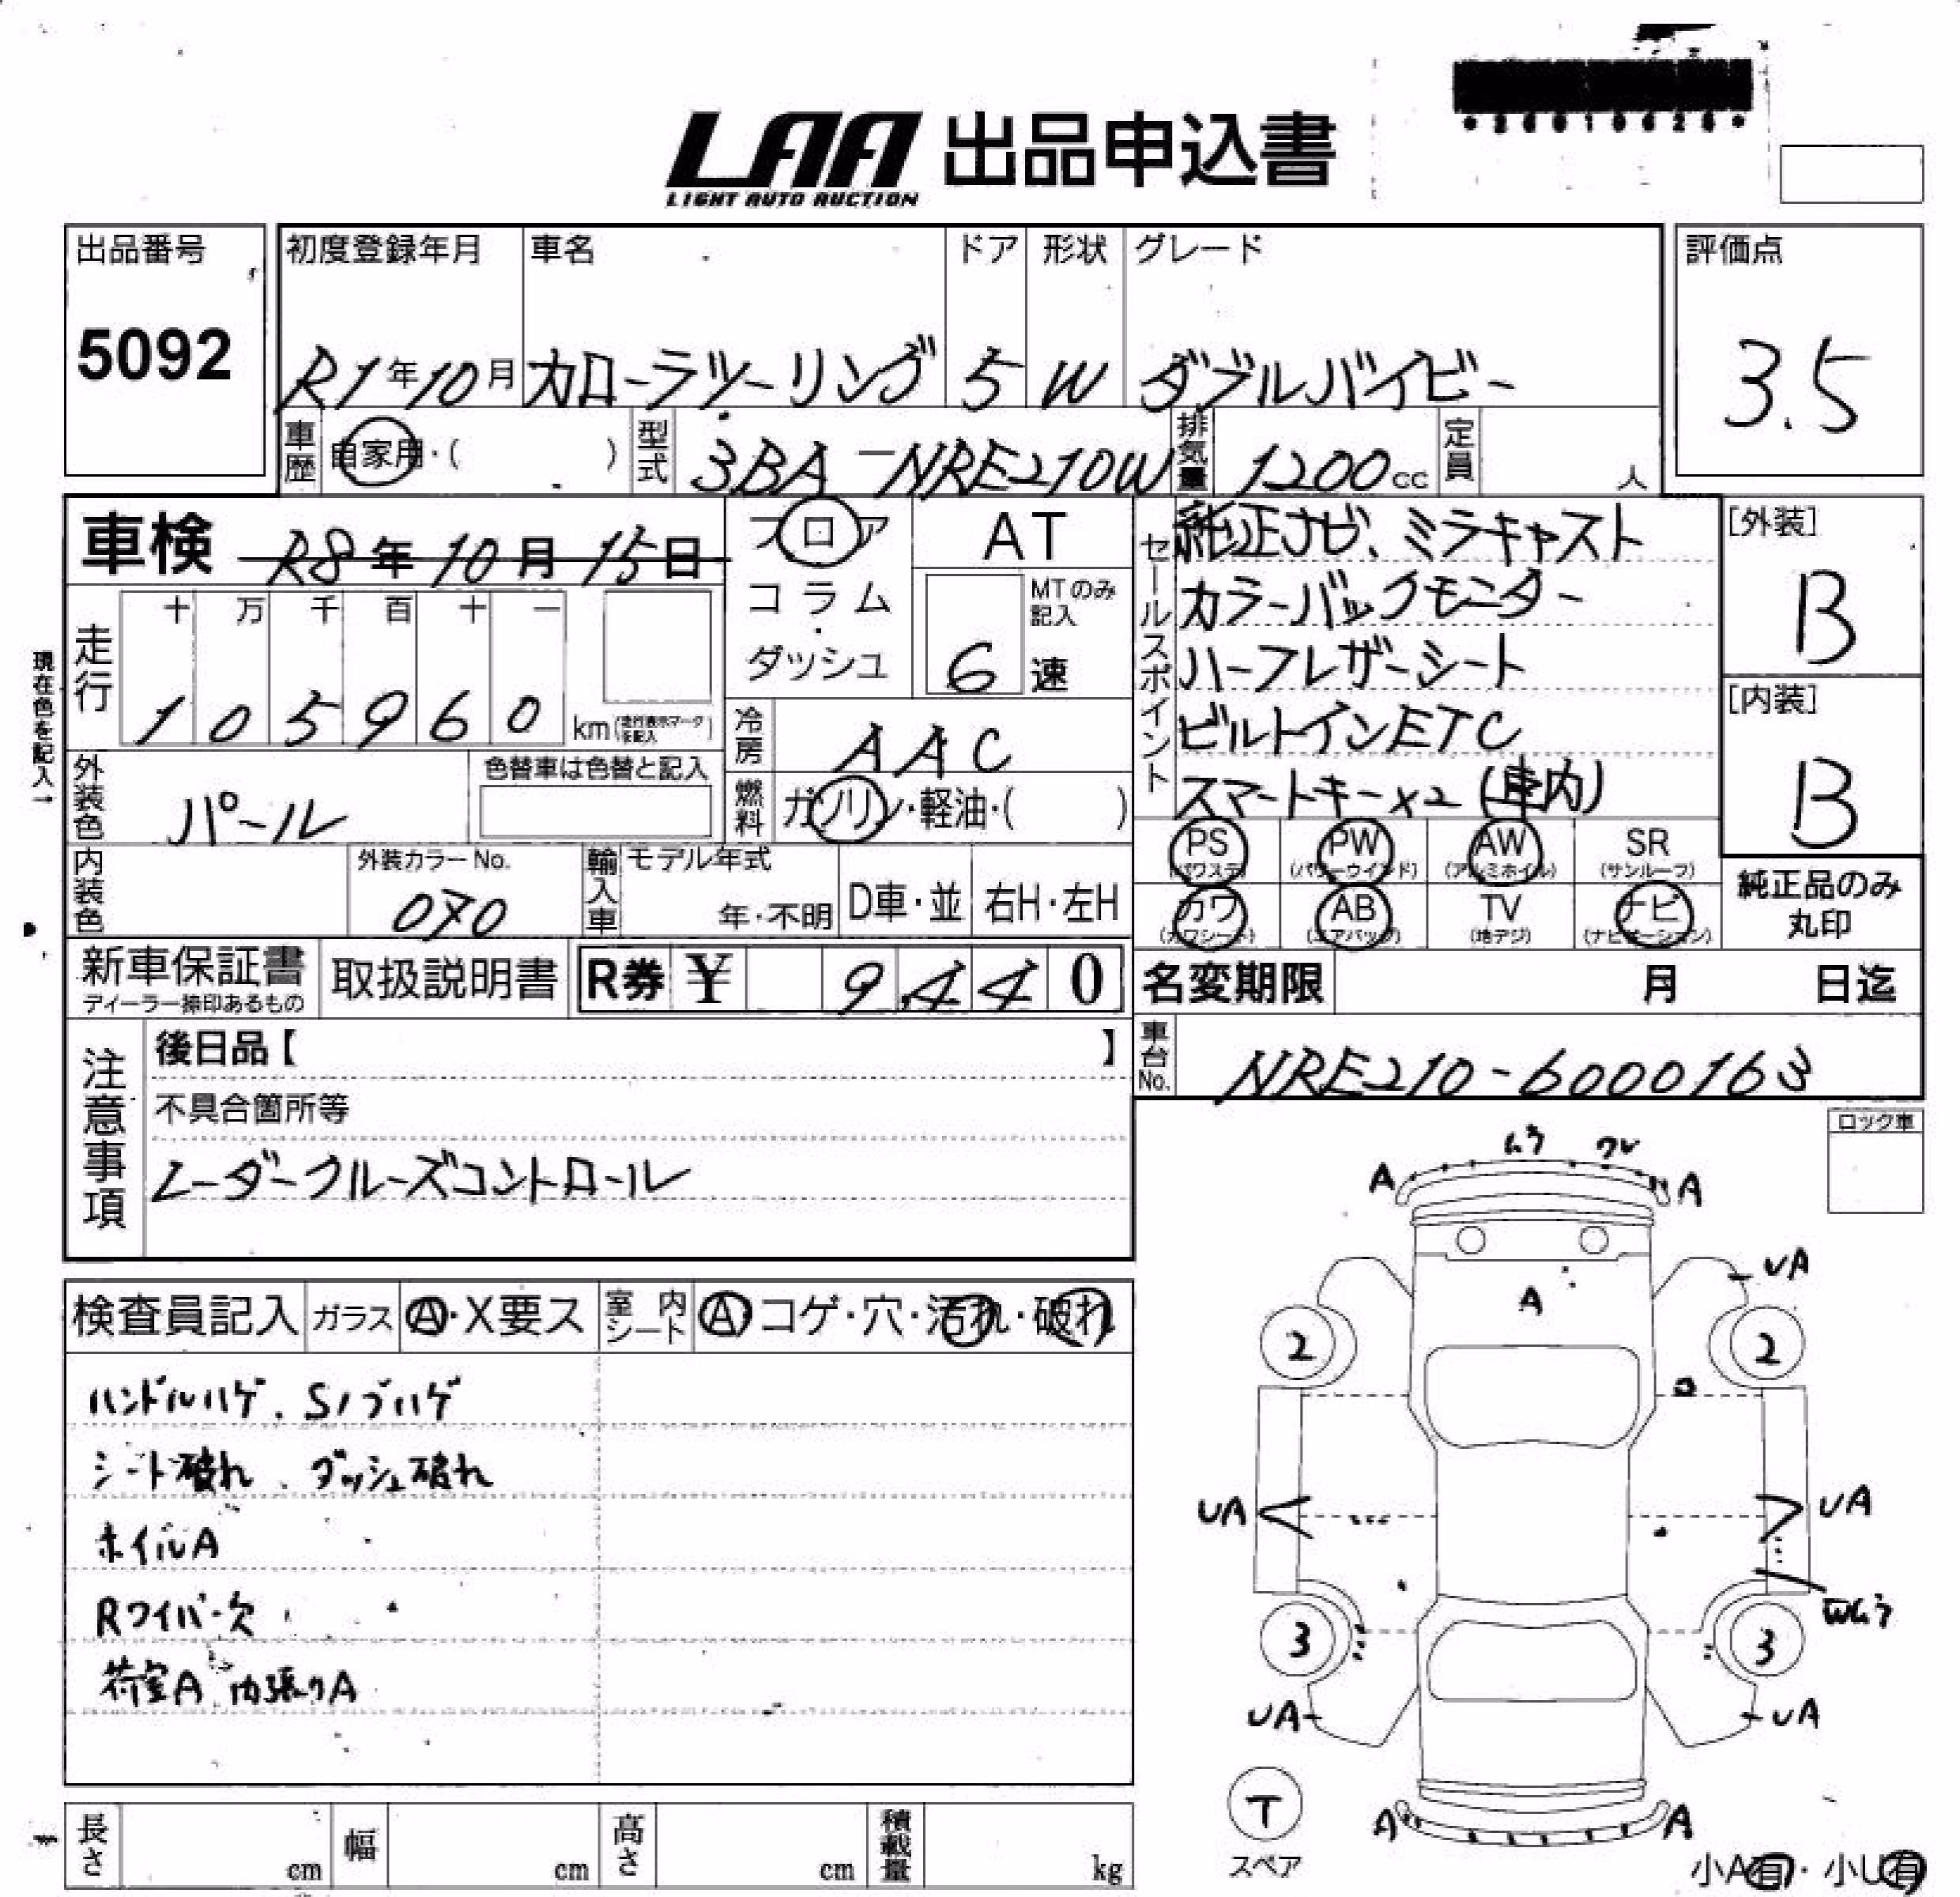 LAA 出品申込書
LIGHT AUTO AUCTION
出品番号
5092
初度登録年月 車名 ドア 形状 グレード
R1年10月 カローラツーリング 5 W ダブルバイビー
評価点
3.5
車歴 自家用・( ) 型式 3BA-NRE210W 排気量 1200cc 定員 人
車検 R8年10月15日
フロア
コラム・
ダッシュ
AT
MTのみ記入
6速
セールスポイント
純正ナビ、ミラキャスト
カラーバックモニター
ハーフレザーシート
ビルトインETC
スマートキーx2(車内)
[外装]
B
[内装]
B
現在色を記入→
走行 十 万 千 百 十 一
1 0 5 9 6 0 km(走行表示マークを記入)
冷房 AAC
外装色 パール 色替車は色替と記入
燃料 ガソリン・軽油・( )
PS (パワステ) PW (パワーウインド) AW (アルミホイル) SR (サンルーフ)
カワ (カワシート) AB (エアバッグ) TV (地デジ) ナビ (ナビゲーション)
純正品のみ
丸印
内装色 外装カラーNo. 070 輸入車 モデル年式 年・不明 D車・並 右H・左H
新車保証書 ディーラー捺印あるもの 取扱説明書 R券 ¥ 9,440
名変期限 月 日迄
車台No. NRE210-6000163
注意事項
後日品【 】
不具合箇所等
レーダークルーズコントロール
ロック車
検査員記入 ガラス A・X要ス 室内シート A コゲ・穴・汚れ・破れ
ハンドルハゲ、Sノブハゲ
シート破れ、ダッシュ破れ
ホイルA
Rワイパー欠
荷室A 内張りA
A A
A
UA
2 2
UA UA
3 3
UA UA
T
スペア
A A
小A有・小U有
長さ cm 幅 cm 高さ cm 積載量 kg